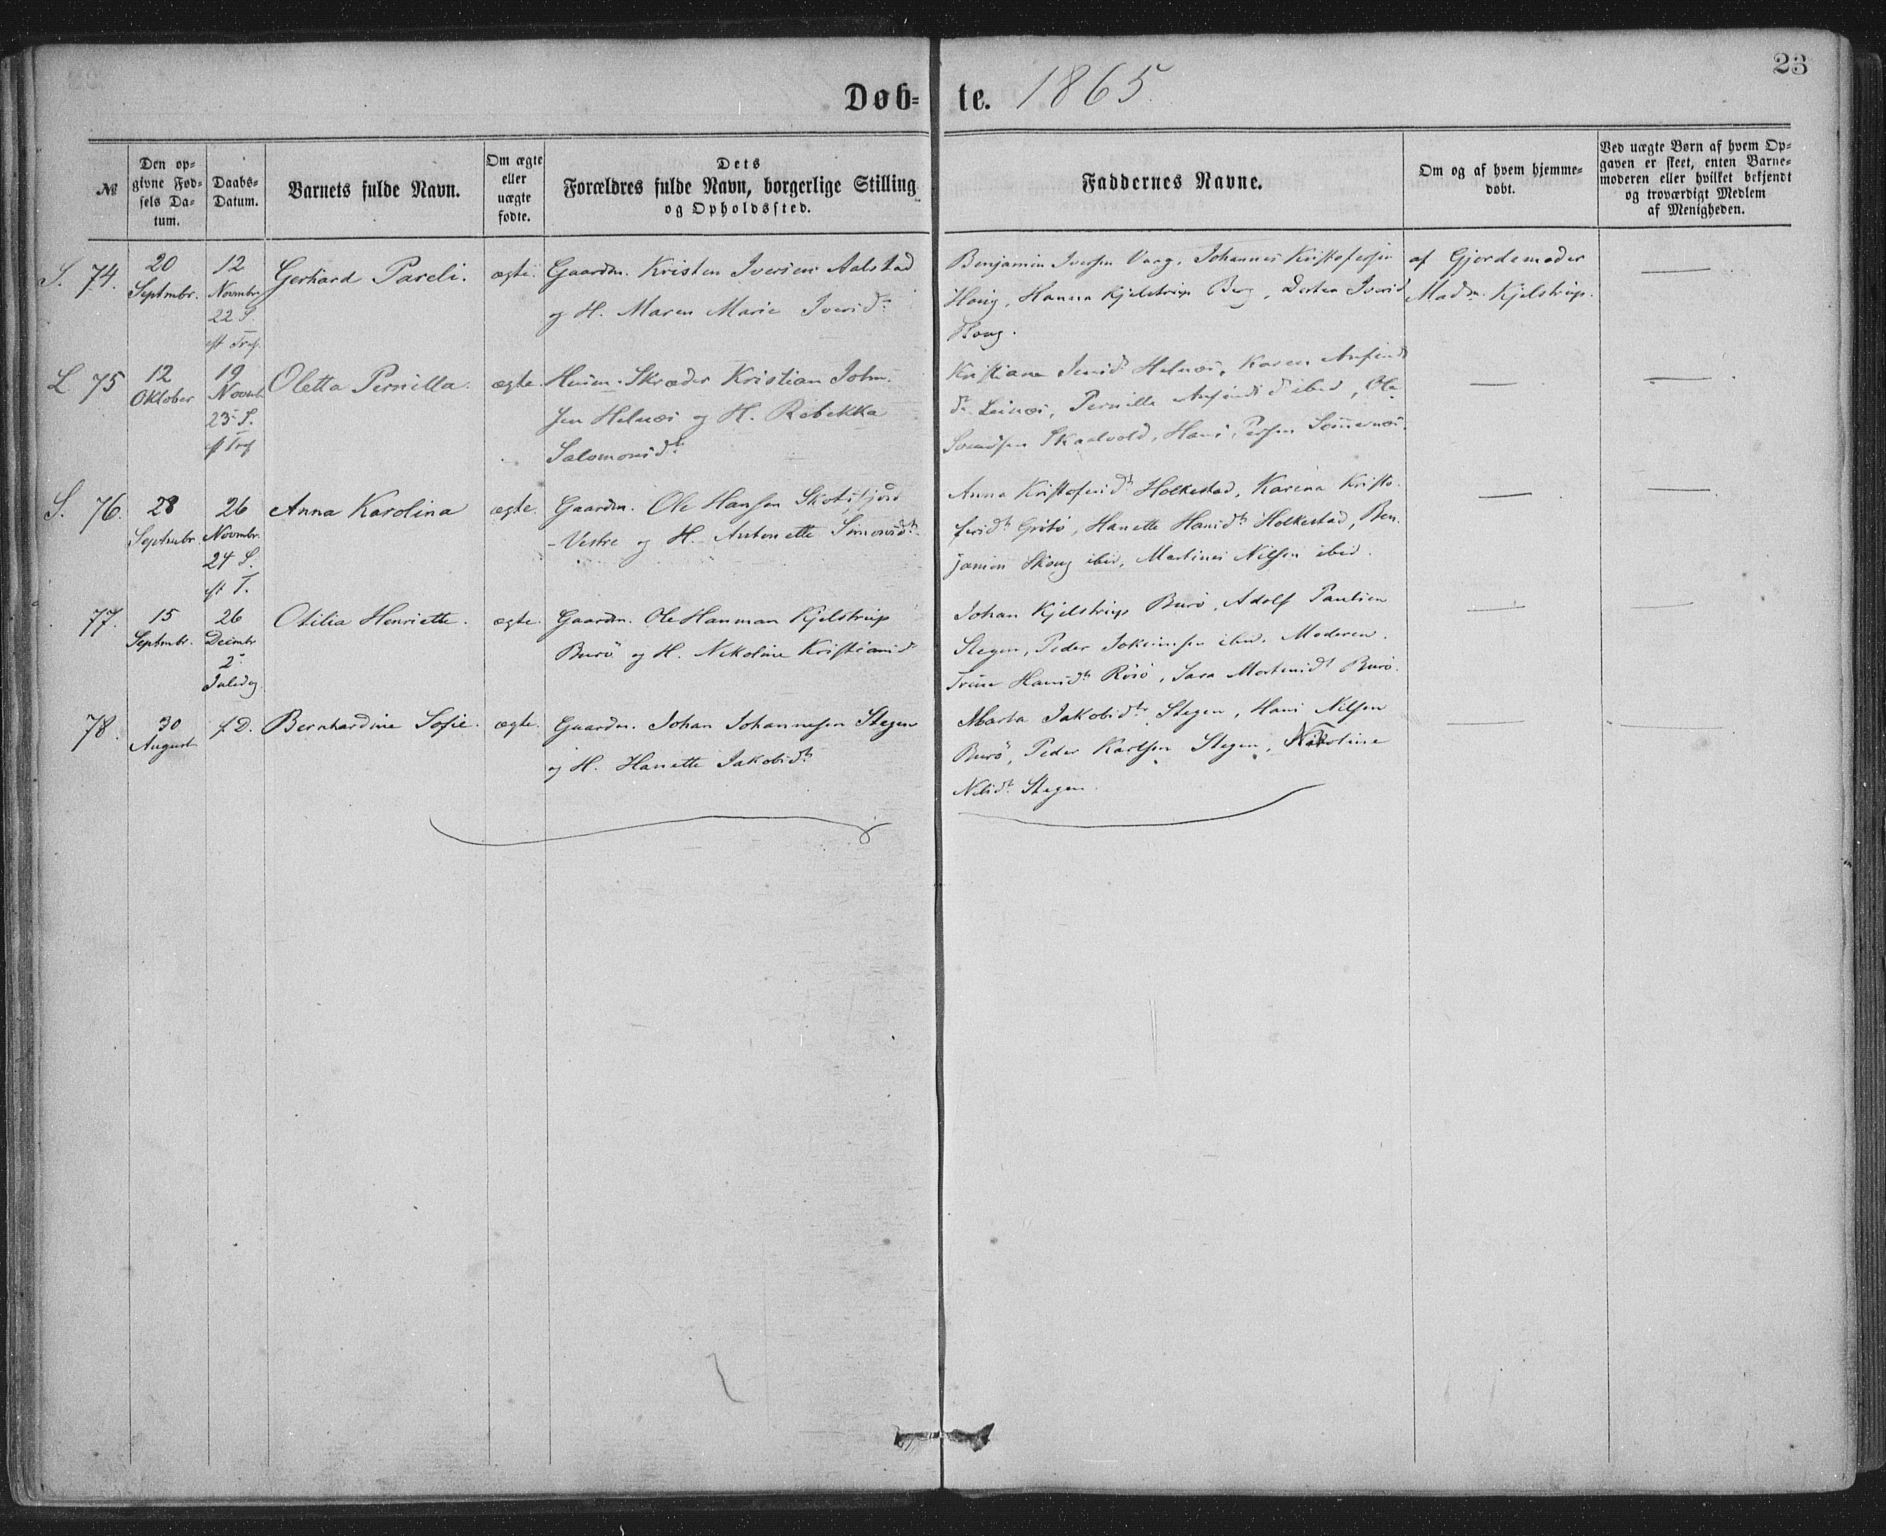 23
Døb- te. 1865.
№
Den opgivne Fødsels Datum.
Daabs-Datum.
Barnets fulde Navn.
Om ægte eller uægte fødte.
Dets Forældres fulde Navn, borgerlige Stilling og Opholdssted.
Faddernes Navne.
Om og af hvem hjemmedøbt.
Ved uægte Børn af hvem Opgaven er skeet, enten Barnemoderen eller hvilket bekjendt og troværdigt Medlem af Menigheden.
S. 74. 20 Septmbr. 12 Novmbr. 22 S. eft Tref. Gerhard Pareli. ægte.
Gaardm. Kristen Iversen Aalstad
og H. Maren Marie Iversd.
Benjamin Iversen Vaag, Johannes Kristofersen
Haug, Hanna Kjelstrup Berg, Dortea Iversd
Haug.
af Gjordemoder
Madm. Kjelstrup.
L 75 12 Oktober 19 Novmb. 23 S. eft Tref Oletta Pernilla. ægte.
Huusm. Skræder Kristian John-
sen Helnes og H. Rebekka
Salomonsdt.
Kristiane Jensd. Helnes, Karen Anfinds
dt. Leines, Pernille Anfindsd ibid, Ole
Skaalvold, Hans Persen
S. 76. 28 Septmbr. 26 Novmbr. 24 S. eft T. Anna Karolina ægte.
Gaardm. Ole Hansen Skotsfjord
-Vestre og H. Antonette Simonsdt.
Anna Kristofersdt. Holkestad, Karina Kristo-
fersdt. Grötö, Hanette Hansdt. Holkestad, Ben-
jamin Skaug ibid, Martines Nilsen ibid.
77. 15 Septmbr. 26 Decmbr 2. Juledag Otilia Henriette. ægte.
Gaardm. Ole Hanman Kjelstrup
Burö og H. Nikoline Kristiansd.
Johan Kjelstrup Burö, Adolf Paulsen
Stegen, Peder Jokumsen ibid. Moderen.
Trine Hansdt. Rösö, Sara Mortensdt Burö.
78. 30 August f. D. Bernhardine Sofie. ægte.
Gaardm. Johan Johannesen Stegen
og H. Hanette Jakobsdt.
Marta Jakobsdtr. Stegen, Hans Nilsen
Burö, Peder Karlsen Stegen, Nikoline
Nilsdt. Stegen.